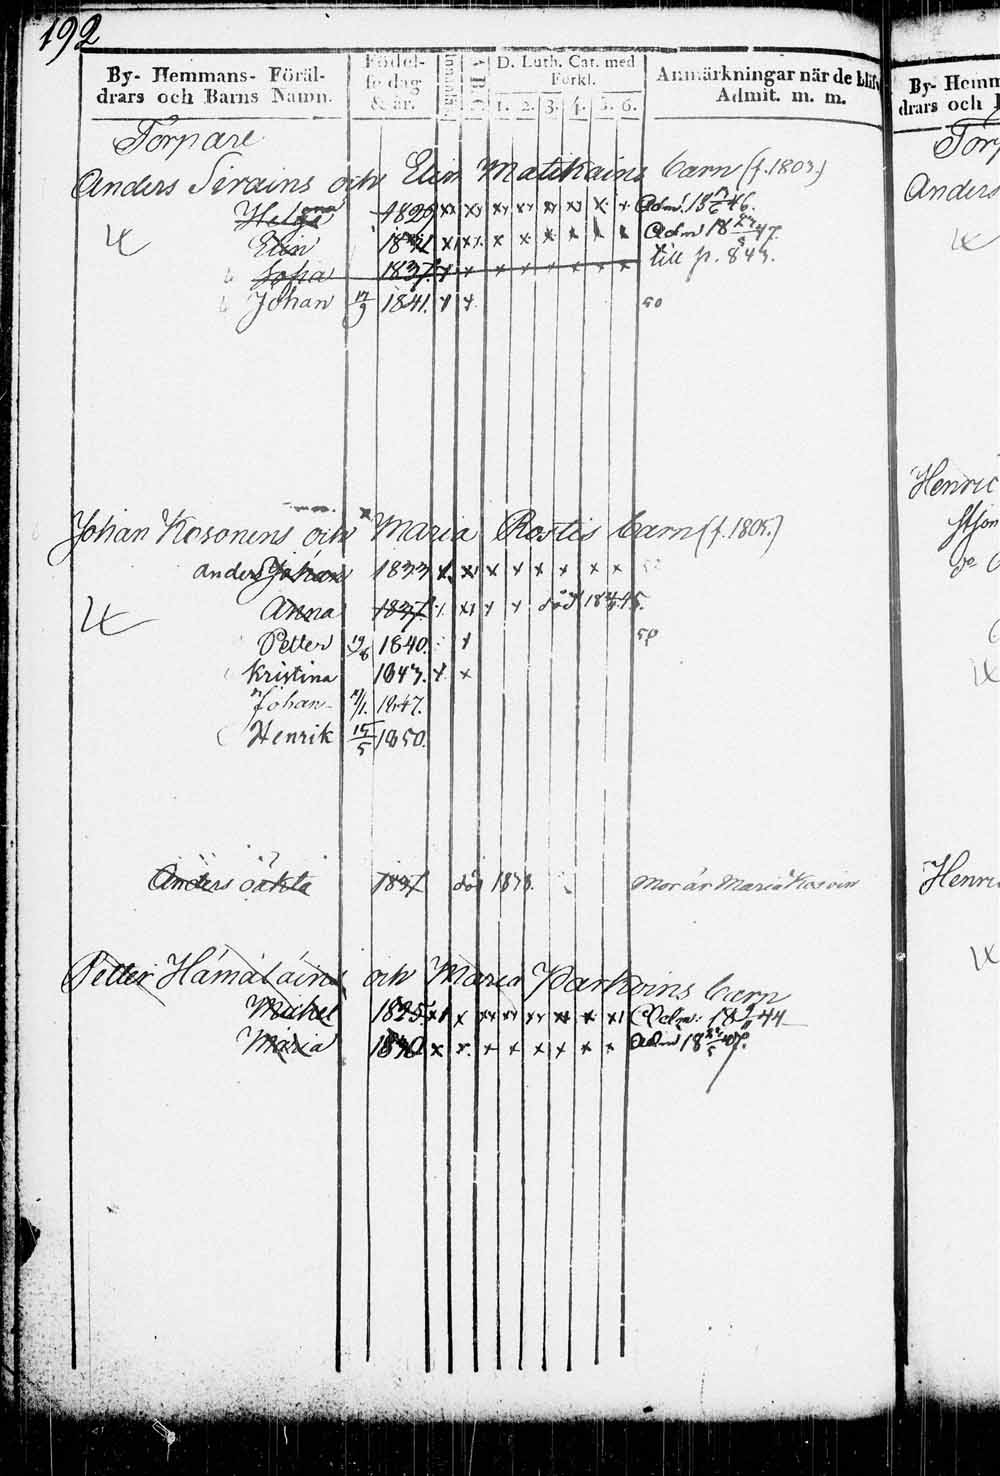 192
By- Hemmans- Föräl-
drars och Barns Namn.
Födel-
se dag
& år.
Innanläs.
A B C
D. Luth. Cat. med
Förkl.
1. 2. 3. 4. 5. 6.
Anmärkningar när de blifv
Admit. m. m.
Torpare
Anders Sirains och Elin Matikains barn (f. 1803.)
Helena 1829 xx xx xx xx xx xx x. x Adm. 18 46.
Elin 1831 x x x x x x x x Adm 18 47.
Sofia 1837. x x x x x x x x till p. 843.
Johan 17/9 1841. x x 50
Johan Kosonens och Maria Rostis barn (f. 1805.)
Anders Johan 1833 x. xx x x x x x x
Anna 1837. x xx x x död 18 45.
Petter 19/6 1840. x 50
Kristina 1843. x x
Johan 1847.
Henrik 15/5 1850.
Anders oäkta 1837 död 1838. Mor är Maria Kosoin
Petter Hämäläins och Maria Parkoins barn
Michel 1825. xx x xx xx xx xx x xx Adm: 18 44
Maria 1830 x x. x x x x x x Adm 18 47.
By- Hemm
drars och B
Torp
Anders
Henric
Henri